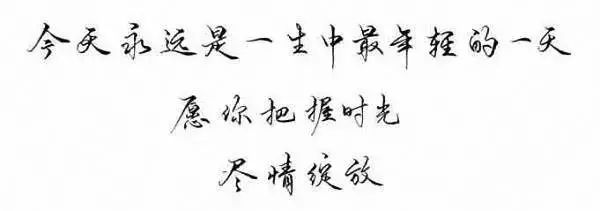 今天永远是一生中最年轻的一天
愿你把握时光
尽情绽放